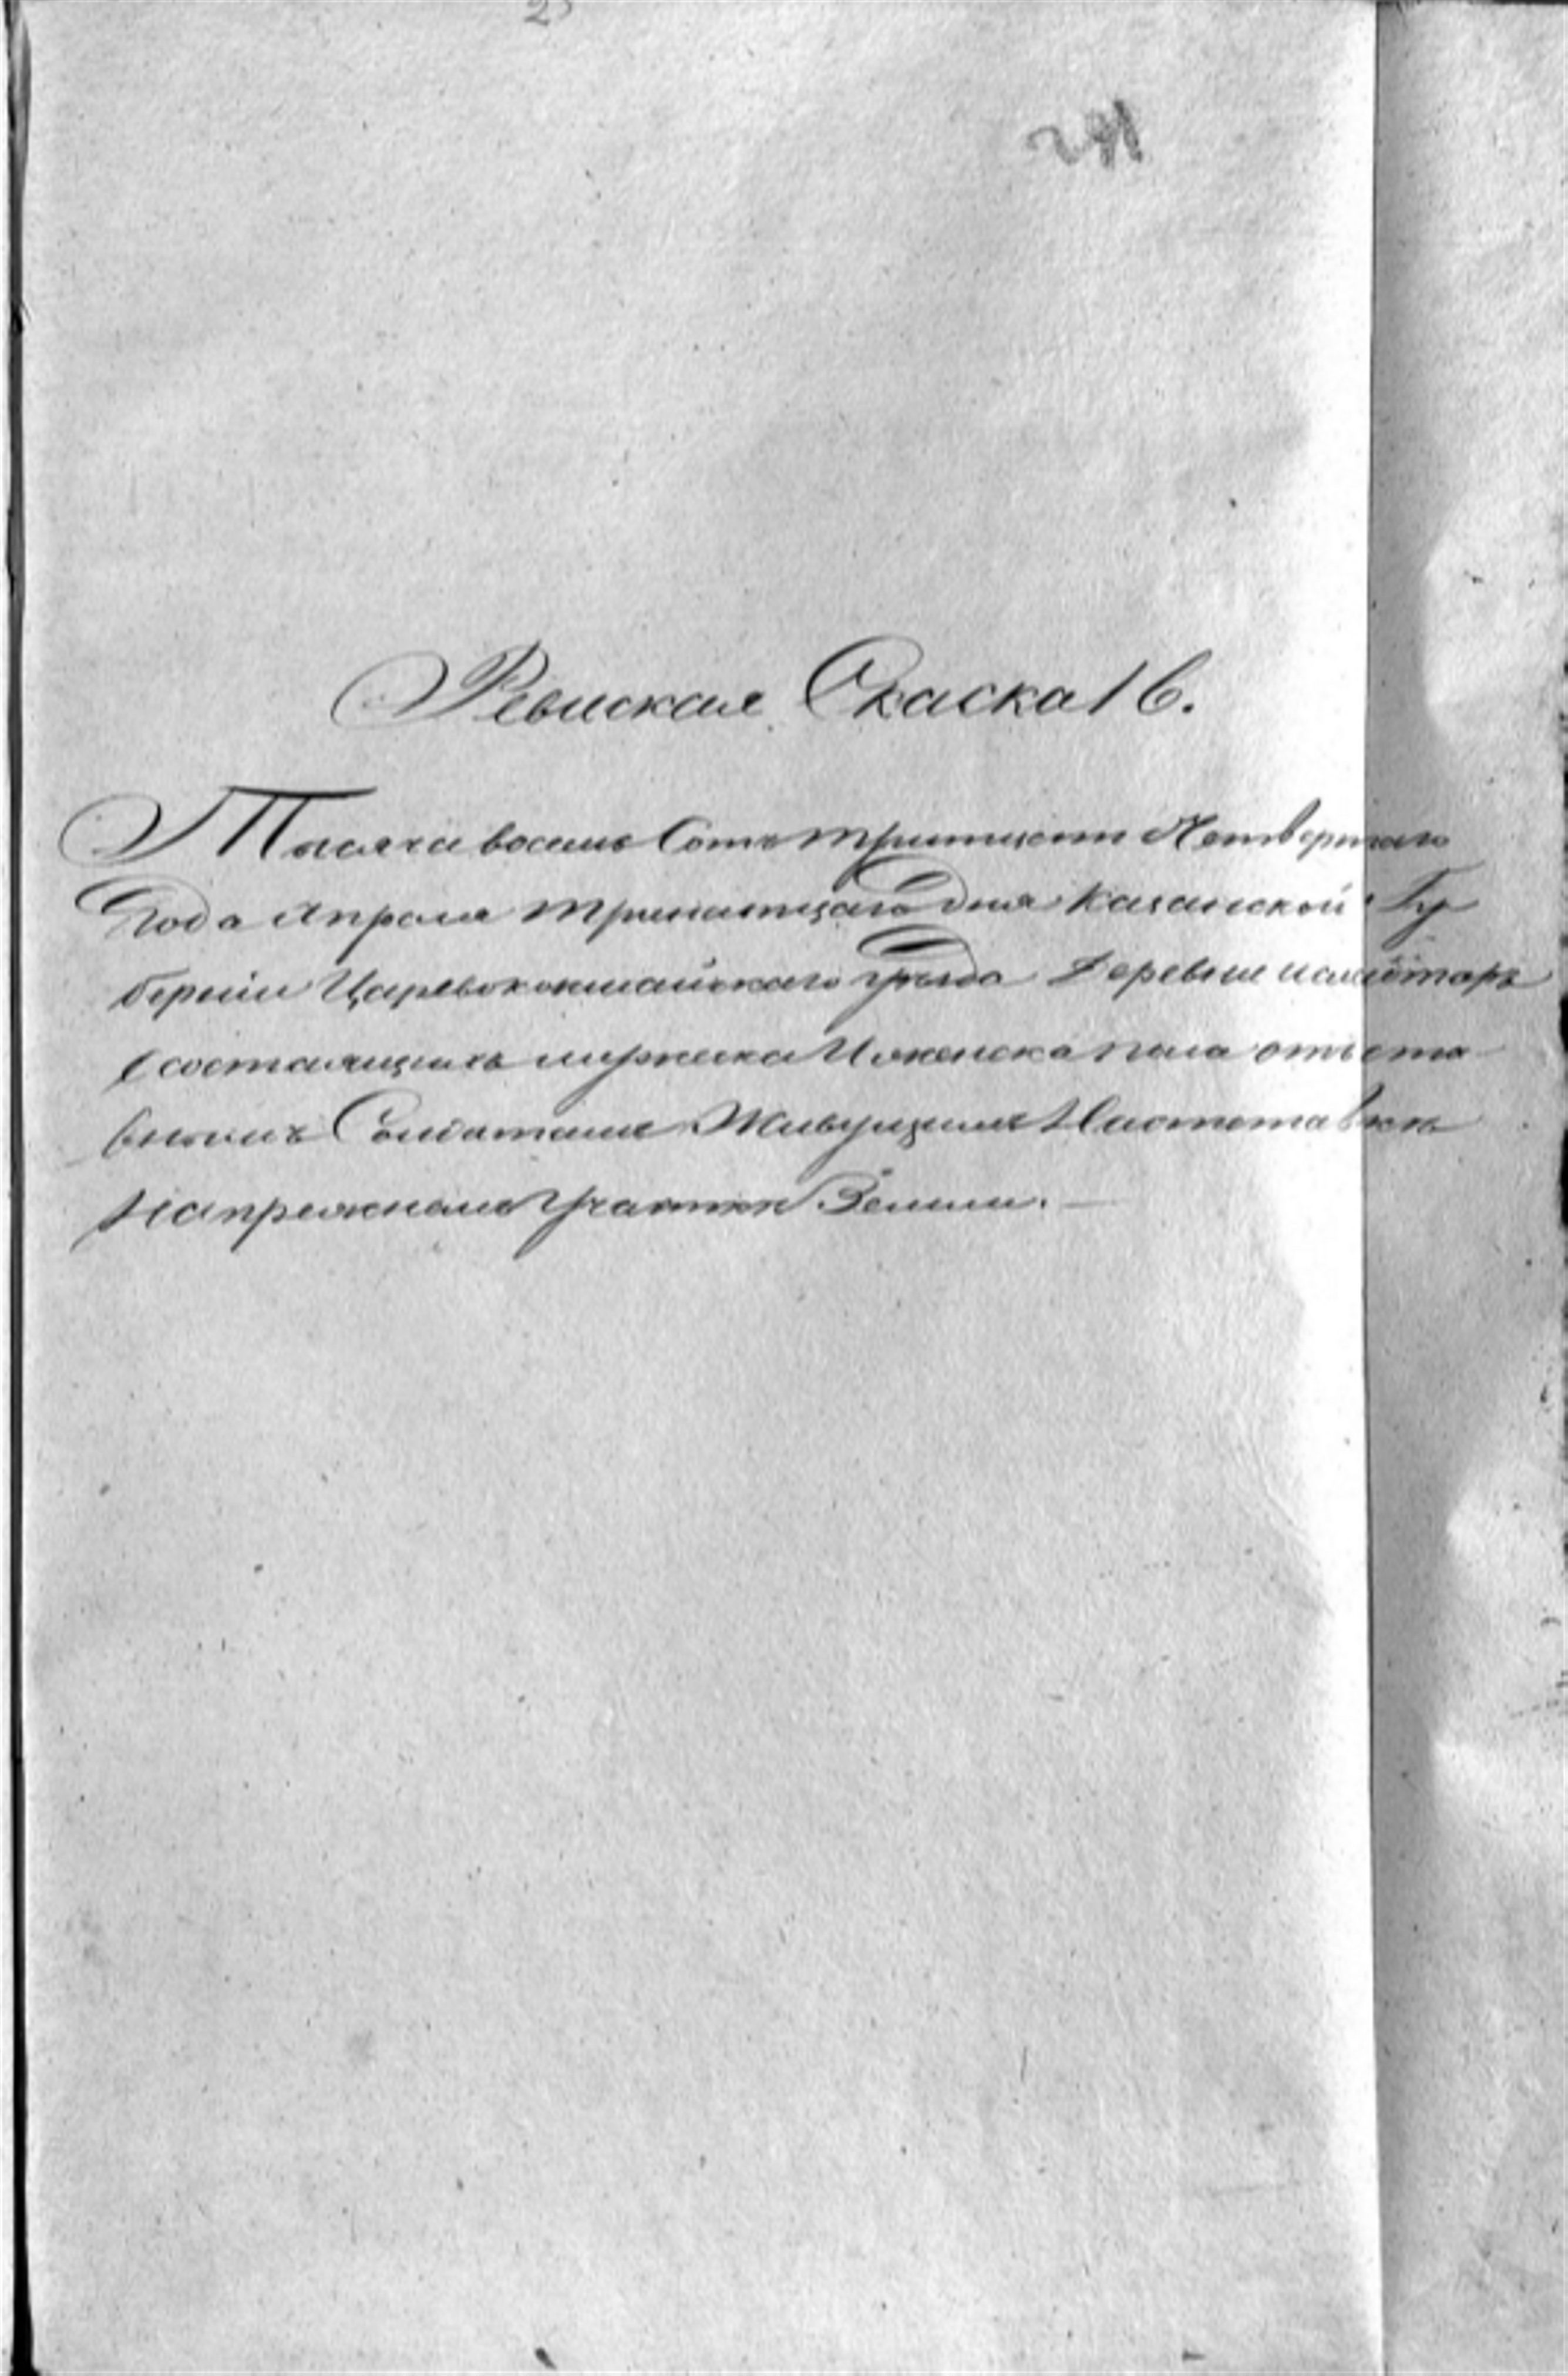 241
Ревиская Скаска 16.
Тысяча восемь Сотъ тритцать Четвертаго
Года апреля тринатцатаго дня Казанской Гу
берніи Царевококшайскаго уезда Деревне
о состаящихъ мужеска И женска пола отъ ста
вныхъ Солдатахъ Живущихъ
Напрежнемъ участке Земли.